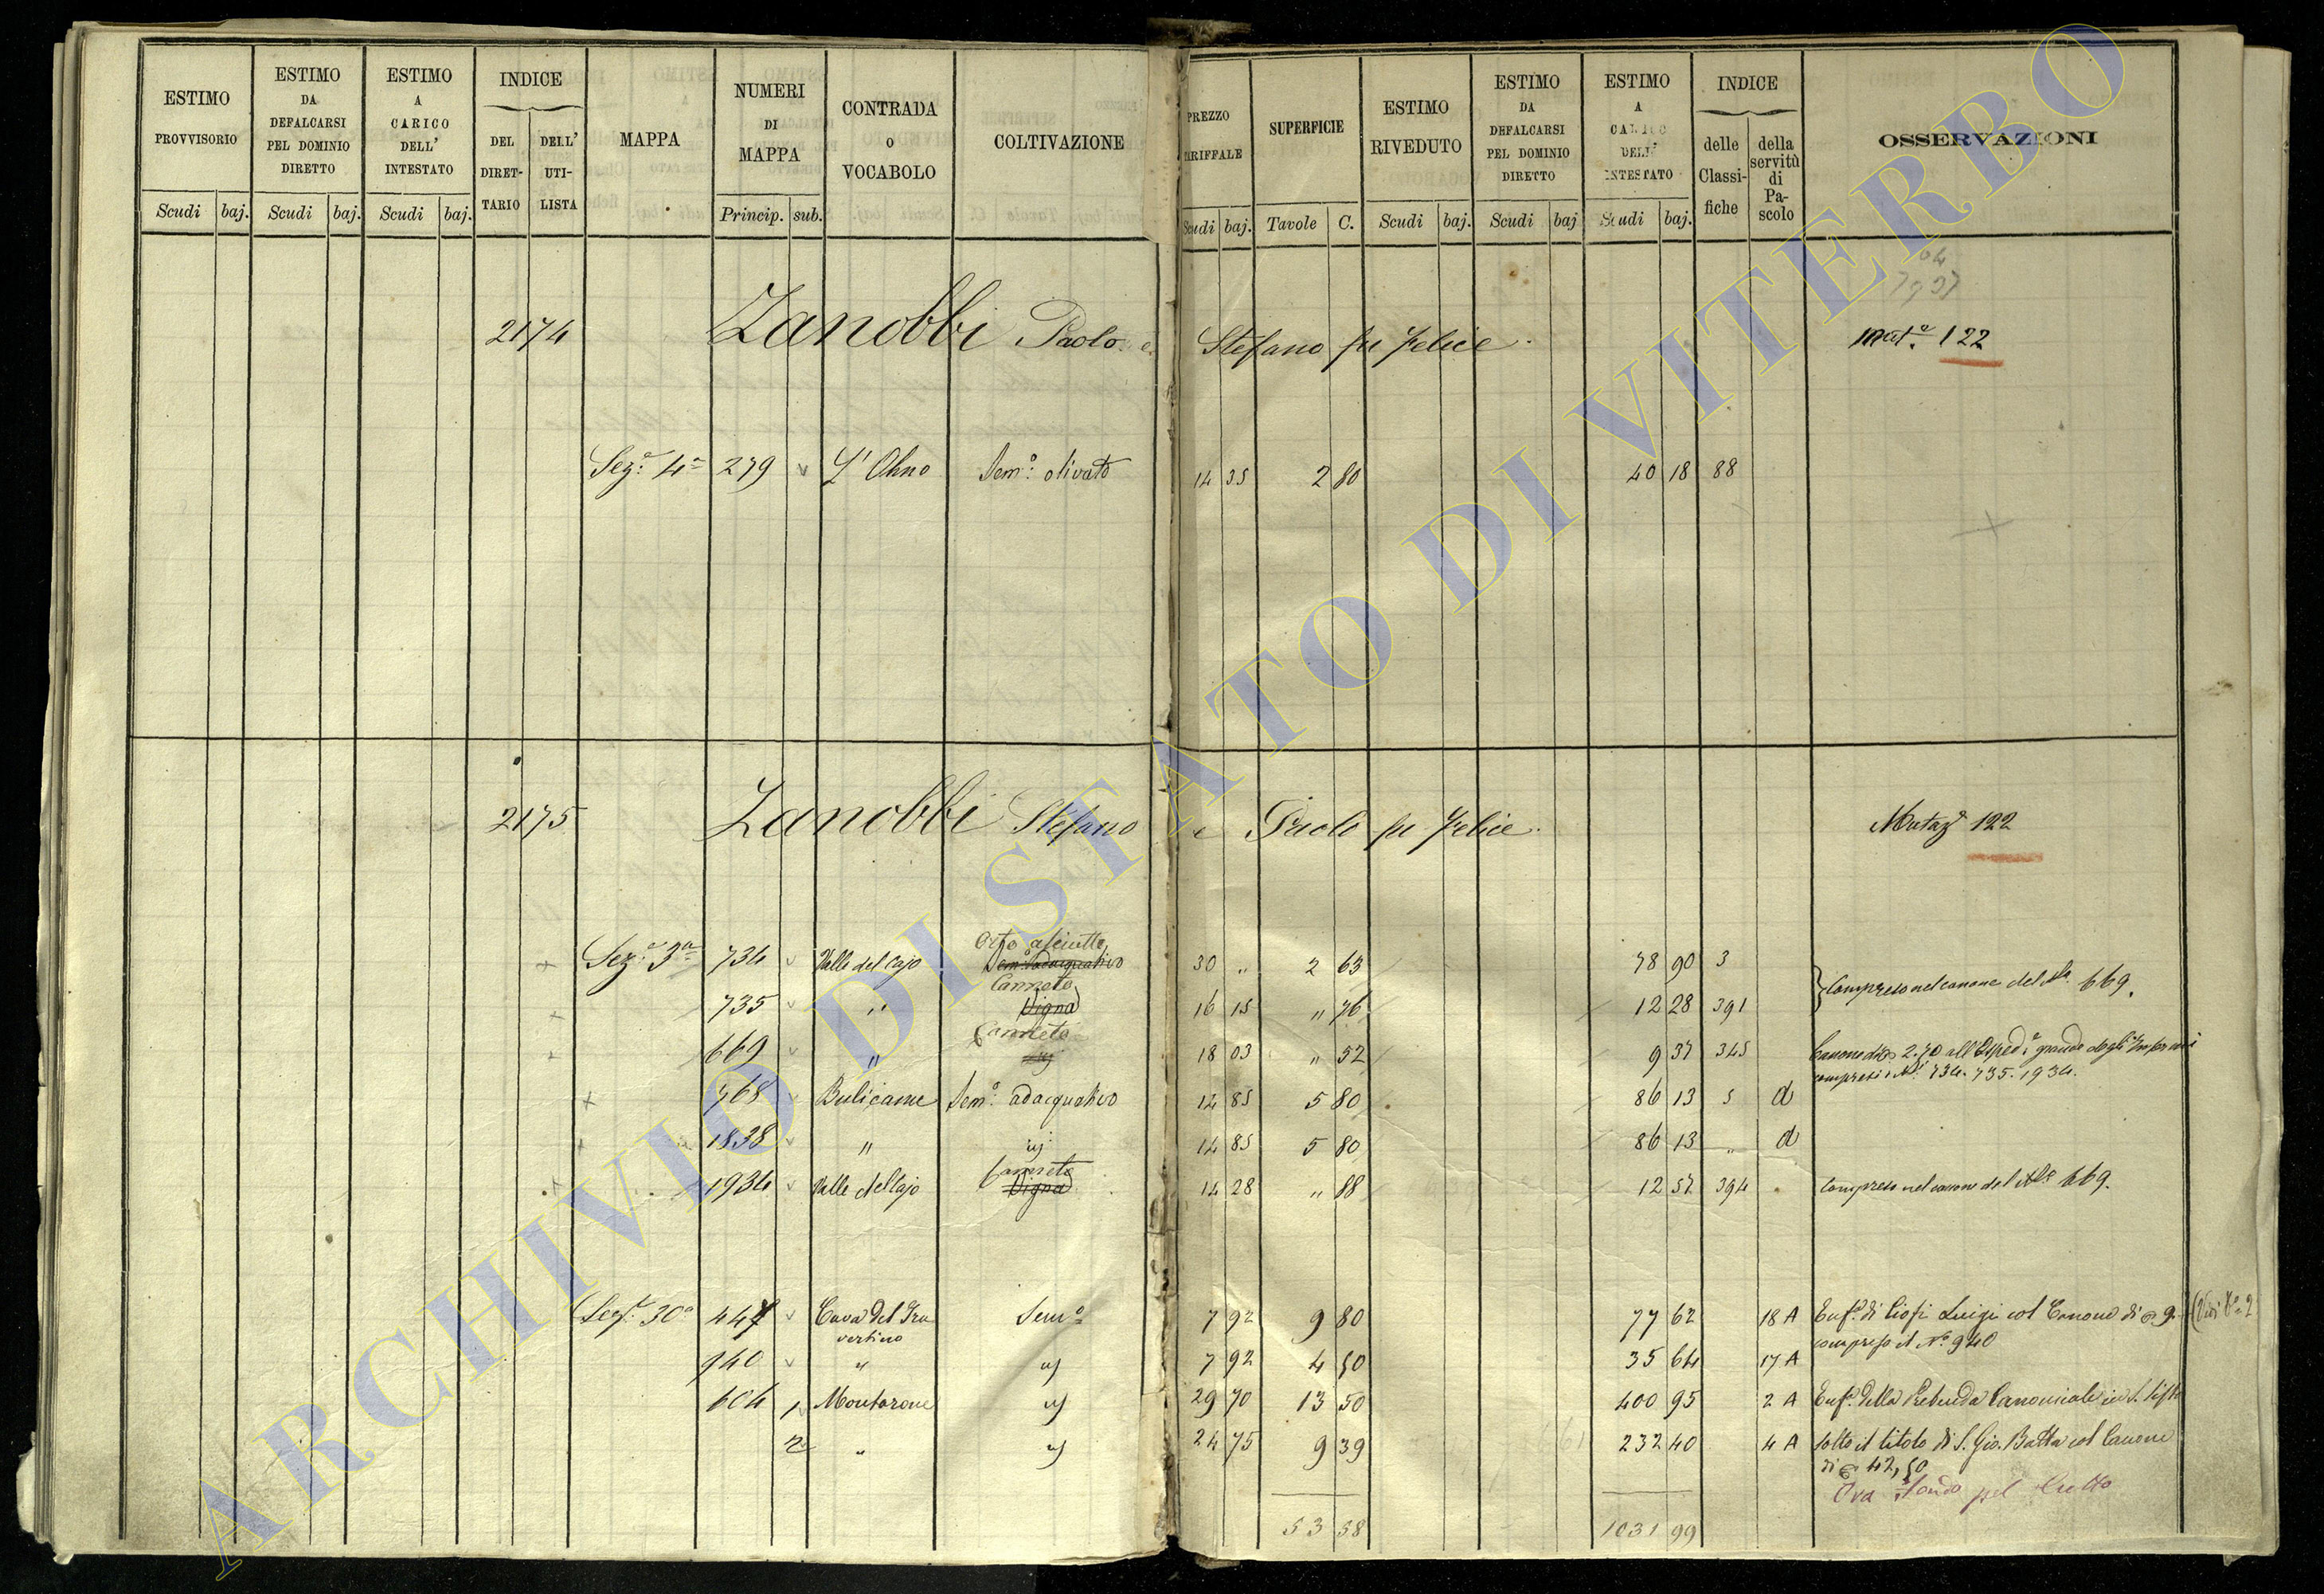 ESTIMO PROVVISORIO | ESTIMO DA DEFALCARSI PEL DOMINIO DIRETTO | ESTIMO A CARICO DELL' INTESTATO | INDICE DEL DIRETTARIO | DELL' UTILISTA | MAPPA | NUMERI DI MAPPA | CONTRADA O VOCABOLO | COLTIVAZIONE | PREZZO TARIFFALE | SUPERFICIE | ESTIMO RIVEDUTO | ESTIMO DA DEFALCARSI PEL DOMINIO DIRETTO | ESTIMO A CARICO DELL' INTESTATO | INDICE delle Classifiche | della servitù di Pascolo | OSSERVAZIONI
Scudi | baj. | Scudi | baj. | Scudi | baj. | Princip. | sub. | Scudi | baj. | Tavole | C. | Scudi | baj. | Scudi | baj | Scudi | baj.
2174 Zanobbi Paolo e Stefano fu Felice. Mat.e 122
Sez.e 4a 279 L'Olmo Sem.o olivato 14 35 2 80 40 18 88
2175 Zanobbi Stefano e Paolo fu Felice. Mutaz.e 122
Orto asciutto
Sez.e 3a 734 Valle del Cajo Sem.o adacquativo 30 " 2 63 78 90 3
Compreso nel canone del No. 669.
Canneto
735 " Vigna 16 15 " 76 12 28 391
Canneto
669 " 18 03 " 52 9 37 345 Canone di 2.70 all'Osped.e grande degli Infermi
compresi i Ni. 734. 735. 1934.
768 Bulicame Sem.o adacquativo 14 85 5 80 86 13 5 d
1838 " 14 85 5 80 86 13 " d
Canneto
1934 Valle del Cajo Vigna 14 28 " 88 12 57 394 Compreso nel canone del No. 669.
Sez.e 30a 447 Cava del Travertino Sem.o 7 92 9 80 77 62 18 A Enf.a di Ciofi Luigi col Canone di 9.
compreso il No. 940
940 " 7 92 4 50 35 64 17 A
604 1 Montarone 29 70 13 50 400 95 2 A Enf.a della Prebenda Canonicale in S. Sisto
2 " 24 75 9 39 232 40 4 A sotto il titolo di S. Gio. Batta col Canone
di 42,50
Ora Fondo pel Culto
53 38 1031 99
ARCHIVIO DI STATO DI VITERBO